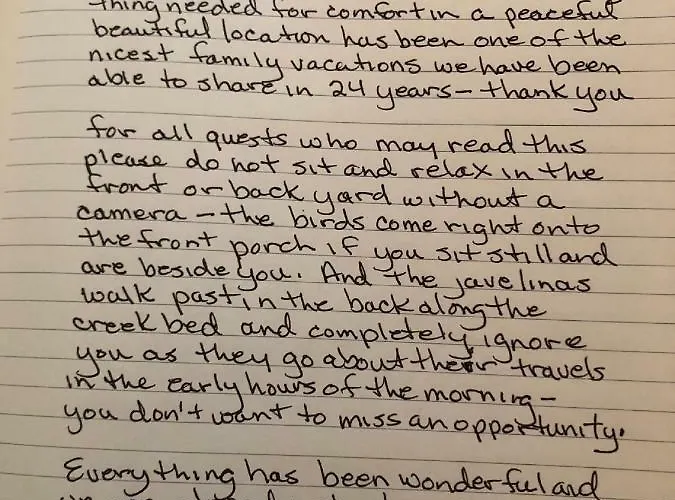 thing needed for comfort in a peaceful
beautiful location has been one of the
nicest family vacations we have been
able to share in 24 years - thank you
for all quests who may read this
please do not sit and relax in the
front or back yard without a
camera - the birds come right onto
the front porch if you sit still and
are beside you. And the javelinas
walk past in the back along the
creek bed and completely ignore
you as they go about their travels
in the early hours of the morning -
you don't want to miss an opportunity.
Everything has been wonderful and